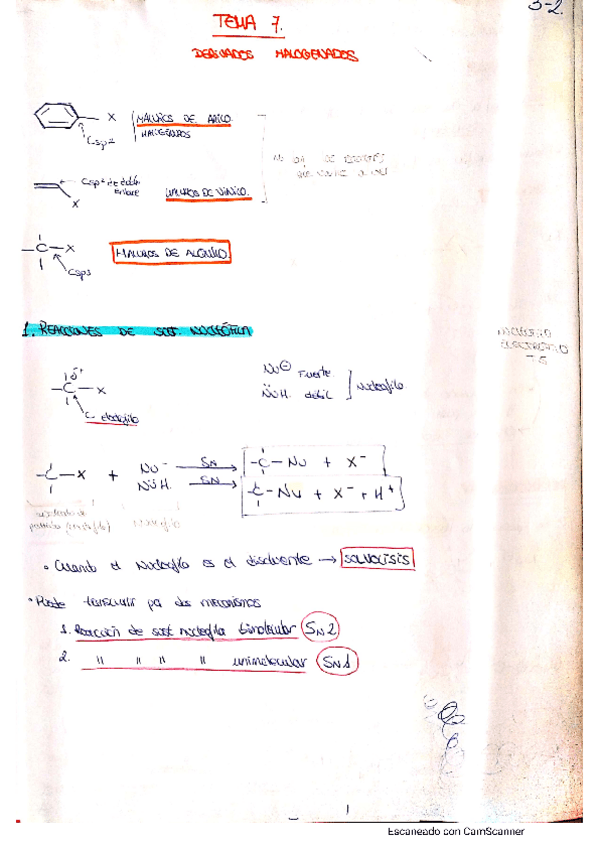 TEMA 7.
DERIVADOS HALOGENADOS
X
HALUROS DE ARILO
HALOGENADOS
Csp²
Csp² de doble enlace
X
HALUROS DE VINILO.
C X
Csp3
HALUROS DE ALQUILO
1. REACCIONES DE SUST. NUCLEÓFILA
δ+
C X
C electrófilo
Nu⊖ Fuerte
N̈uH. débil
Nucleófilo
C — X + Nu⁻ SN C — Nu + X⁻
N̈uH. SN C — Nu + X⁻ + H⁺
• Cuando el Nucleófilo es el disolvente → SOLVOLISIS
• Puede transcurrir por dos mecanismos
1. Reacción de sust nucleofila bimolecular SN2
2. " " " " unimolecular SN1
1
Escaneado con CamScanner